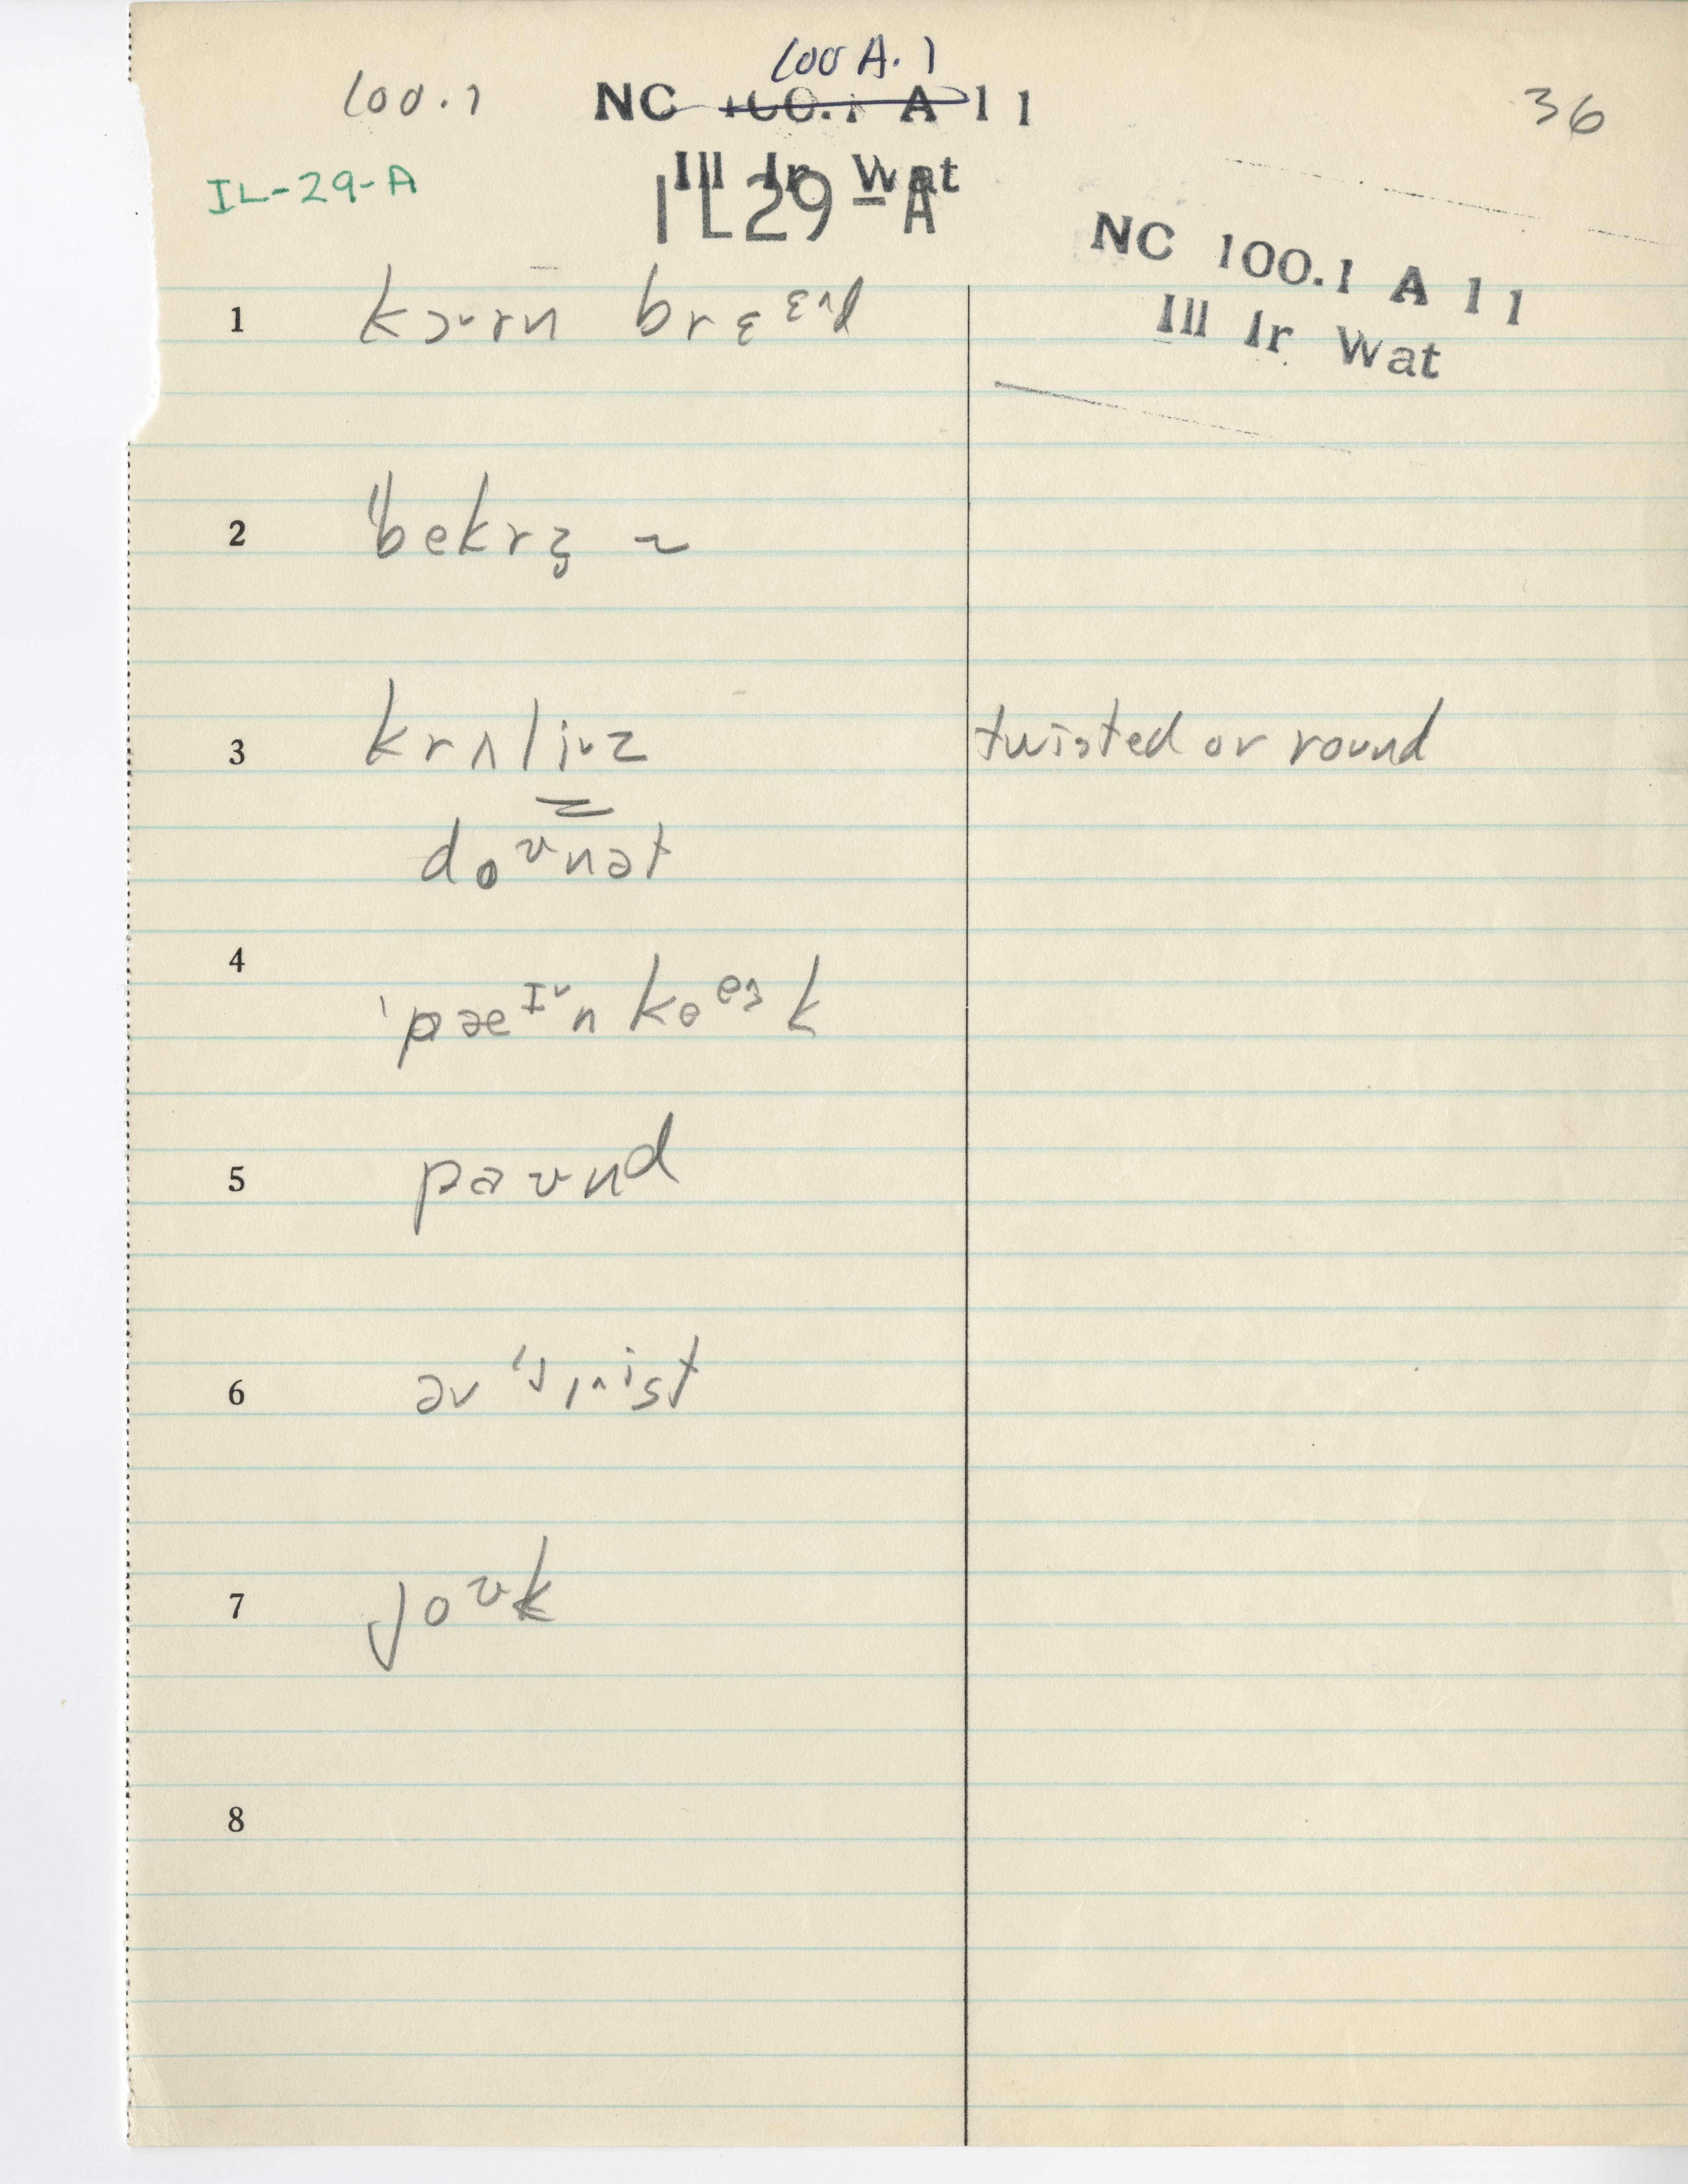 100 A.1
100.1 NC 100.1 A 11 36
Ill Ir Wat
IL-29-A IL29-A
NC 100.1 A 11
Ill Ir Wat
1 kɔ˅rn brɛ ᵋ^d
2 "bekrz ~
3 krʌli˅z twisted or round
doᶷnət
4 'pæᴵ˅n keᵉᶾk
5 paʊnd
6
7 joᶷk
8